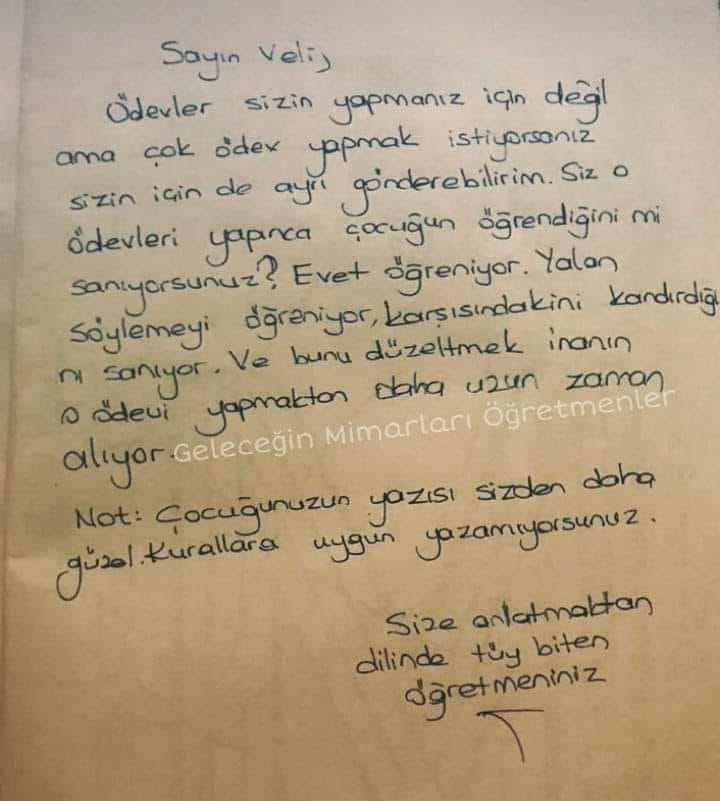 Sayın Veli,
Ödevler sizin yapmanız için değil
ama çok ödev yapmak istiyorsanız
sizin için de ayrı gönderebilirim. Siz o
ödevleri yapınca çocuğun öğrendiğini mi
sanıyorsunuz? Evet öğreniyor. Yalan
söylemeyi öğreniyor, karşısındakini kandırdığı
nı sanıyor. Ve bunu düzeltmek inanın
o ödevi yapmaktan daha uzun zaman
alıyor.
Geleceğin Mimarları Öğretmenler
Not: Çocuğunuzun yazısı sizden daha
güzel. Kurallara uygun yazamıyorsunuz.
Size anlatmaktan
dilinde tüy biten
öğretmeniniz